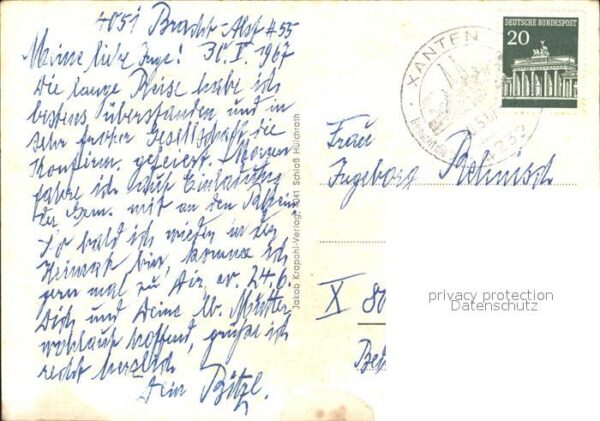 4051 Bracht-Alst #55
Meine liebe Inge! 30.V.1967
Die lange Reise habe ich
bestens überstanden und in
sehr froher Gesellschaft die
Konfirm. gefeiert. Morgen
fahre ich auf Einladung
der Gem. mit an den
So bald ich wieder in der
Heimat bin, komme ich
gern mal zu Dir, ev. 24.6.
Dich und Deine lb. Mutter
wohlauf hoffend, grüße ich
recht herzlich
Dein
Jakob Krapohl-Verlag, 4041 Schloß Hülchrath
XANTEN
4232
DEUTSCHE BUNDESPOST
20
Frau
Ingeborg
X 80
privacy protection
Datenschutz